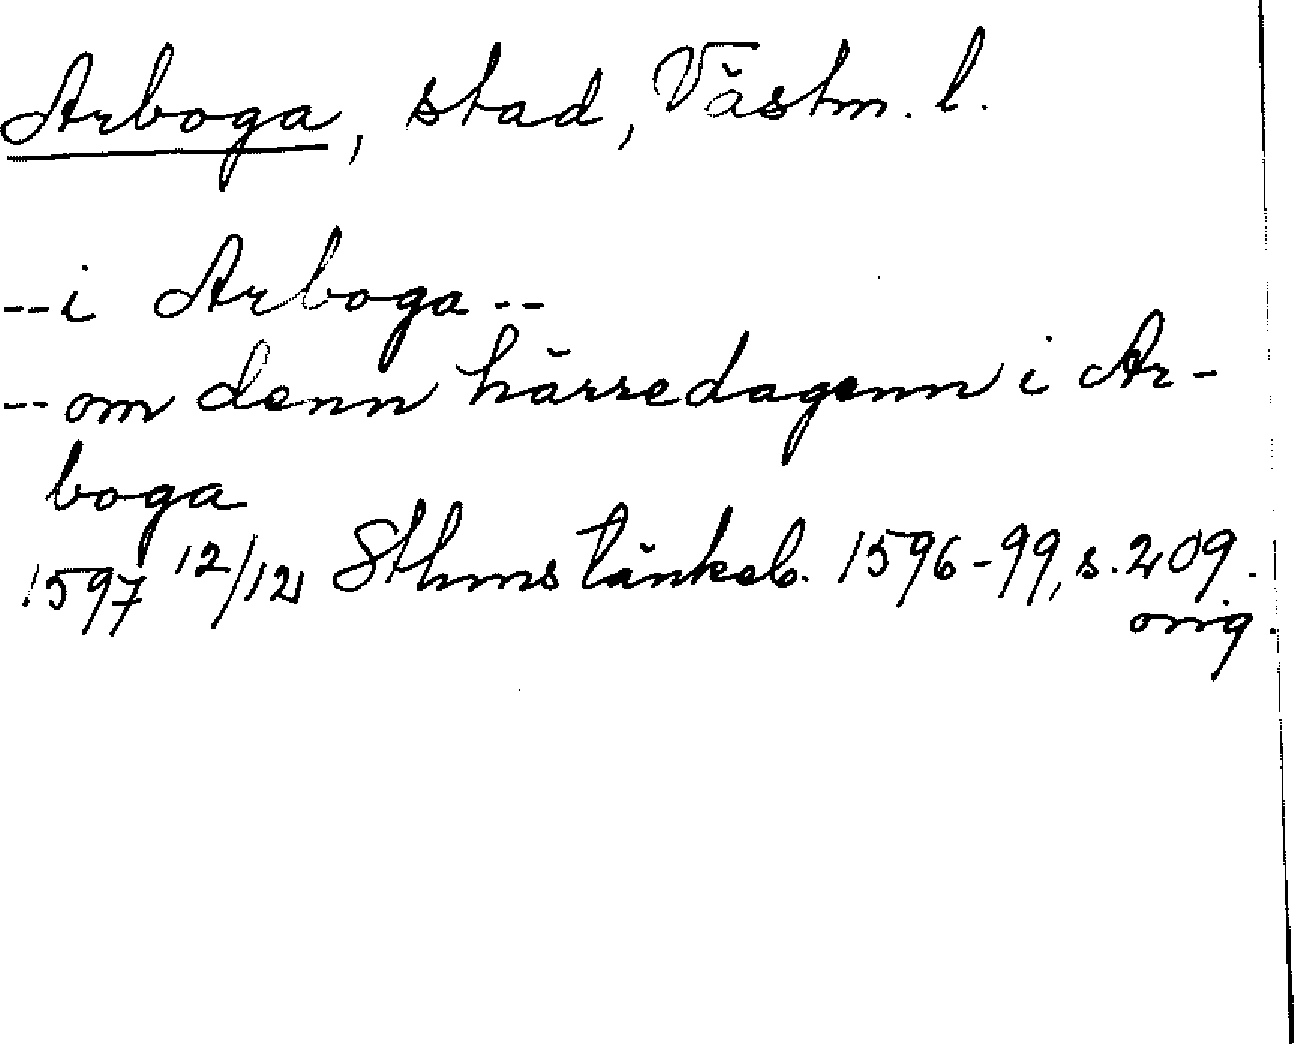 Arboga, stad, Västm. l.
-- i Arboga --
-- om denn härredagenn i Ar-
boga
1597 12/12 Sthms tänkeb. 1596-99, s. 209.
orig.